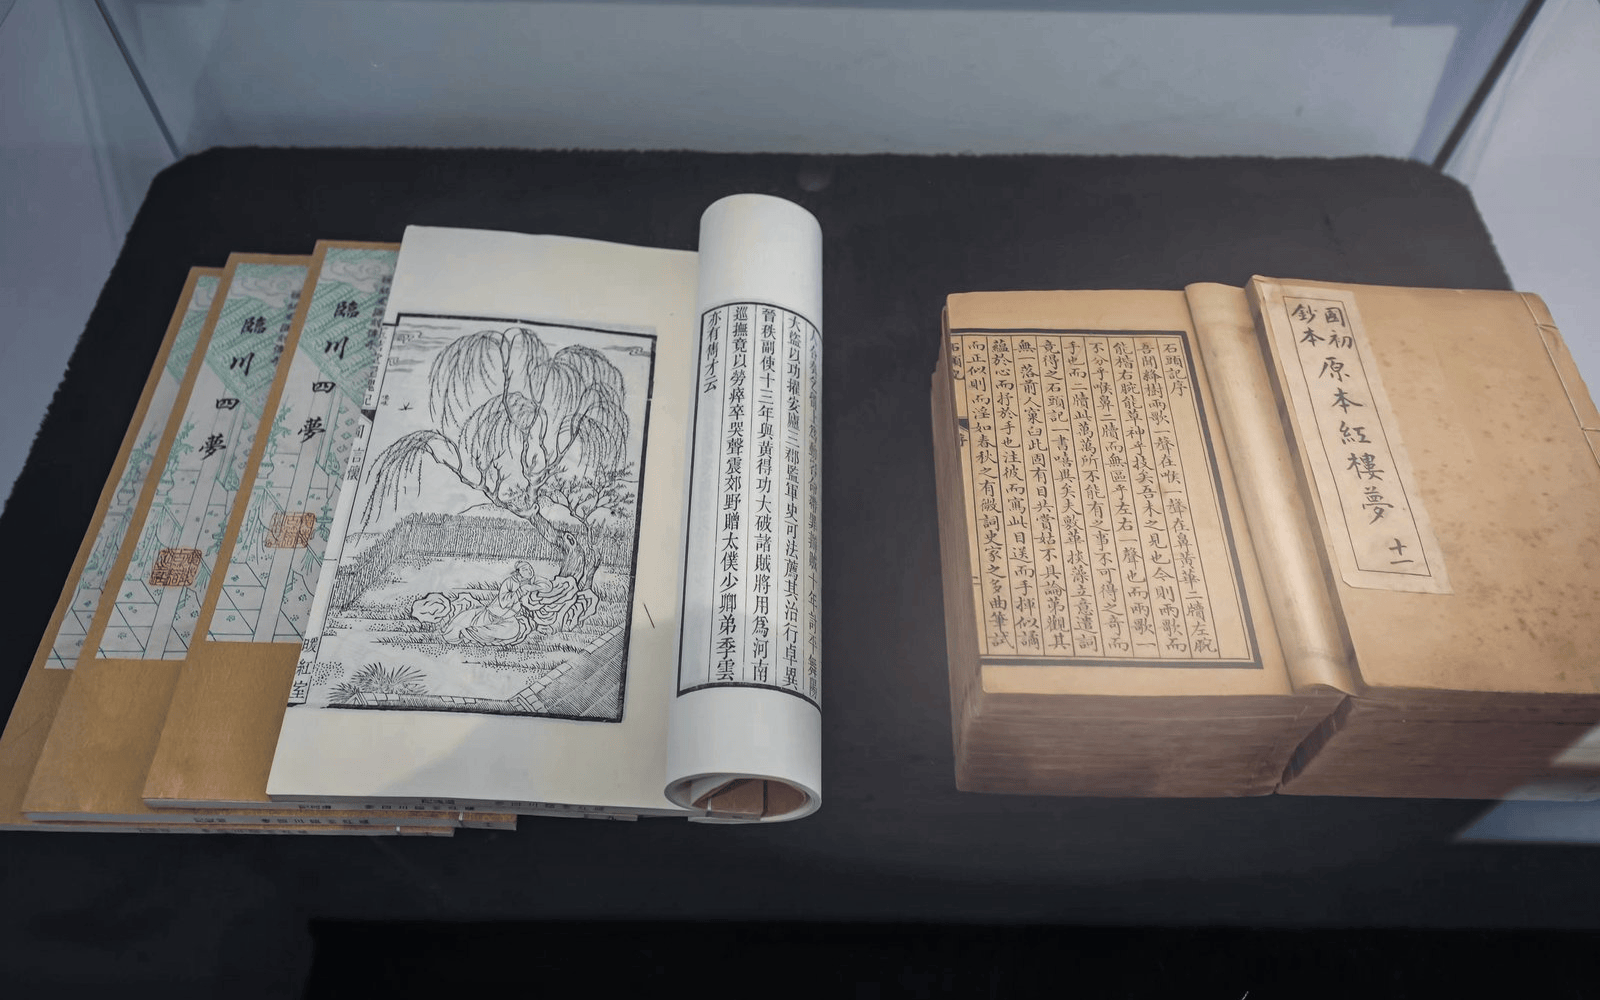 臨川四夢
臨川四夢
暖紅室
大盜以功擢安廬三郡監軍史可法薦其治行卓異
晉秩副使十三年與黄得功大破諸賊將用爲河南
巡撫竟以勞瘁卒哭聲震郊野贈太僕少卿弟季雲
亦有雋才云
石頭記序
吾聞絳樹兩歌一聲在喉一聲在鼻黃華二牘左腕
能楷右腕能草神乎技矣吾未之見也今則兩歌而
不分乎喉鼻二牘而無區乎左右一聲也而兩歌一
手也而二牘此萬萬所不能有之事不可得之奇而
竟得之石頭記一書嘻異矣夫敷華掞藻立意遣詞
無一落前人窠臼此固有目共賞姑不具論第觀其
蘊於心而抒於手也注彼而寫此目送而手揮似譎
而正似則而淫如春秋之有微詞史家之多曲筆試
國初
鈔本
原本紅樓夢
十一